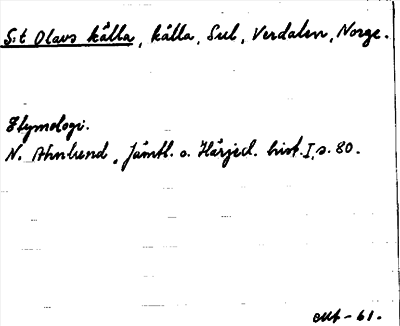 S:t Olavs källa, källa, Sul, Verdalen, Norge.
Etymologi.
N. Ahnlund, Jämtl. o. Härjed. hist. I, s. 80.
-61.